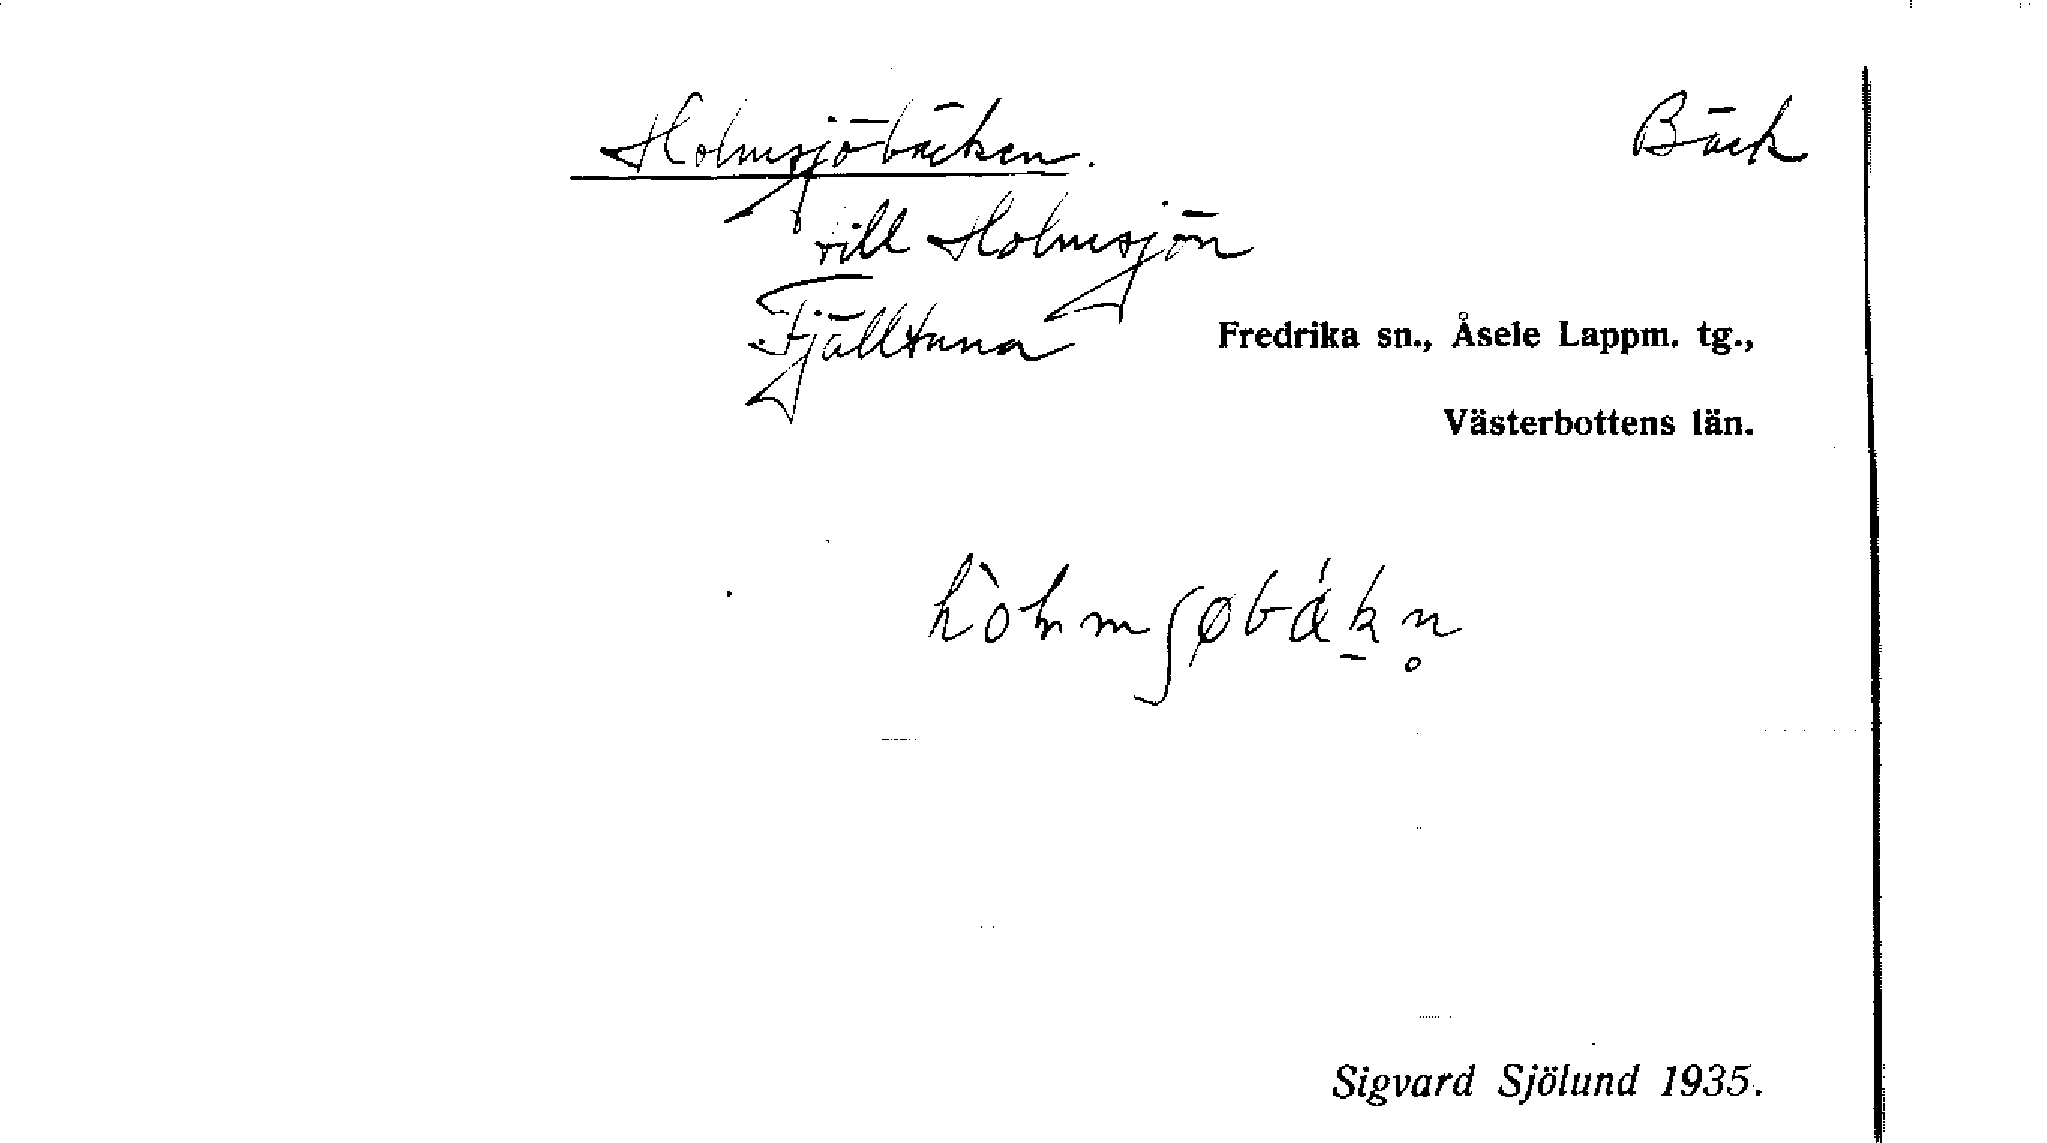 Holmsjöbäcken. Bäck
till Holmsjön
Fjälltuna
Fredrika sn., Åsele Lappm. tg.,
Västerbottens län.
Sigvard Sjölund 1935.